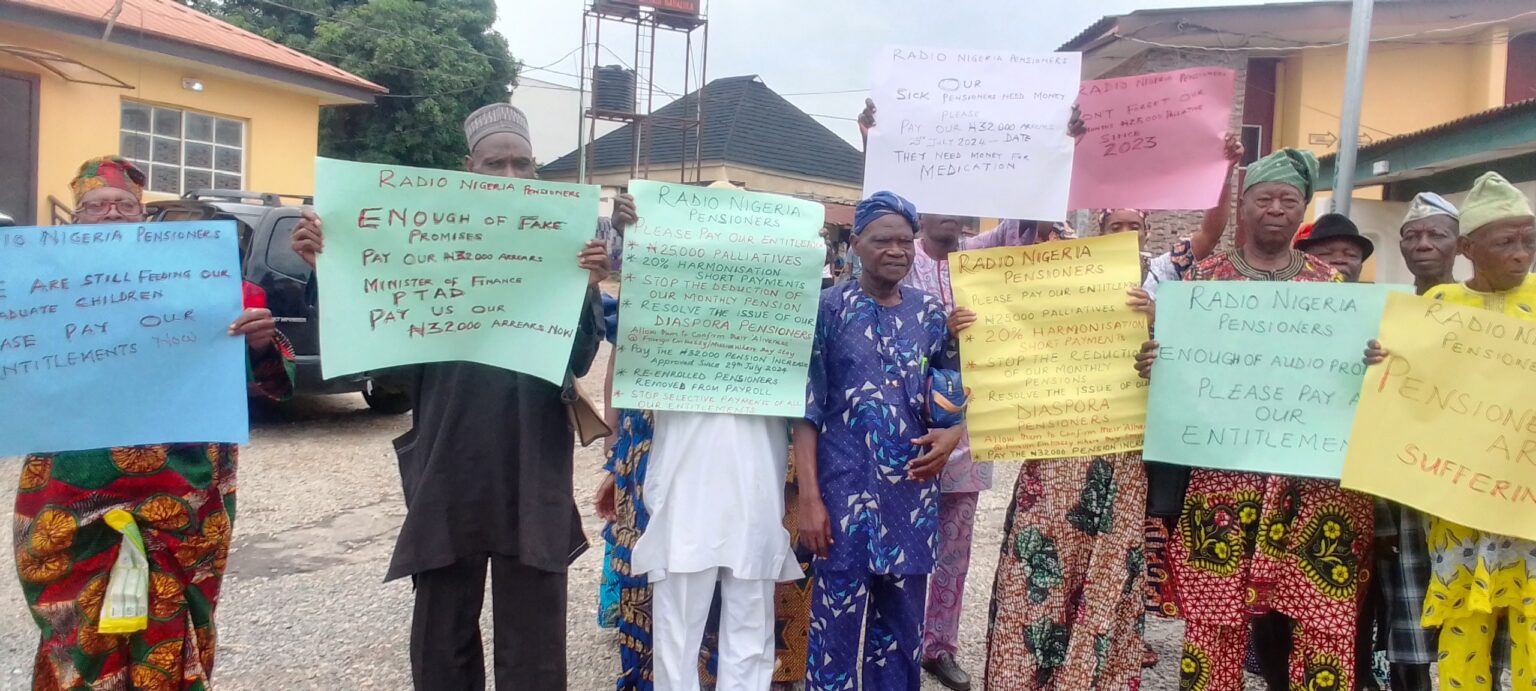 IO NIGERIA PENSIONERS
ARE STILL FEEDING OUR
ADUATE CHILDREN
ASE PAY OUR
ENTITLEMENTS NOW
RADIO NIGERIA PENSIONERS
ENOUGH OF FAKE
PROMISES
PAY OUR ₦32000 ARREARS
MINISTER OF FINANCE
PTAD
PAY US OUR
₦32000 ARREARS NOW
RADIO NIGERIA
PENSIONERS
PLEASE PAY OUR ENTITLE
* ₦25000 PALLIATIVES
* 20% HARMONISATION
SHORT PAYMENTS
* STOP THE DEDUCTION OF
OUR MONTHLY PENSION
RESOLVE THE ISSUE OF OUR
DIASPORA PENSIONERS
Allow them to Confirm their 'Aliveness
@ Foreign Embassy/Mission where they stay
* PAY THE ₦32000 PENSION INCREASE
APPROVED SINCE 29TH JULY 2024
* RE-ENROLLED PENSIONERS
REMOVED FROM PAYROLL
* STOP SELECTIVE PAYMENTS OF ALL
OUR ENTITLEMENTS
RADIO NIGERIA PENSIONERS
OUR
SICK PENSIONERS NEED MONEY
PLEASE
PAY OUR ₦32000 ARREARS
JULY 2024 - DATE
THEY NEED MONEY FOR
MEDICATION
RADIO NIGERIA PENSIONERS
ONT FORGET OUR
MONTHS ₦25000 PALLIATIVE
SINCE
2023
RADIO NIGERIA
PENSIONERS
PLEASE PAY OUR ENTITLEME
* ₦25000 PALLIATIVES
* 20% HARMONISATION
SHORT PAYMENTS
* STOP THE REDUCTION
OF OUR MONTHLY
PENSIONS
RESOLVE THE ISSUE OF
DIASPORA
PENSIONERS
Allow them to Confirm their Aliveness
@ Foreign Embassy where they stay
* PAY THE ₦32000 PENSION INCRE
RADIO NIGERIA
PENSIONERS
ENOUGH OF AUDIO PRO
PLEASE PAY A
OUR
ENTITLEMEN
RADIO NI
PENSION
PENSIONE
AR
SUFFERIN